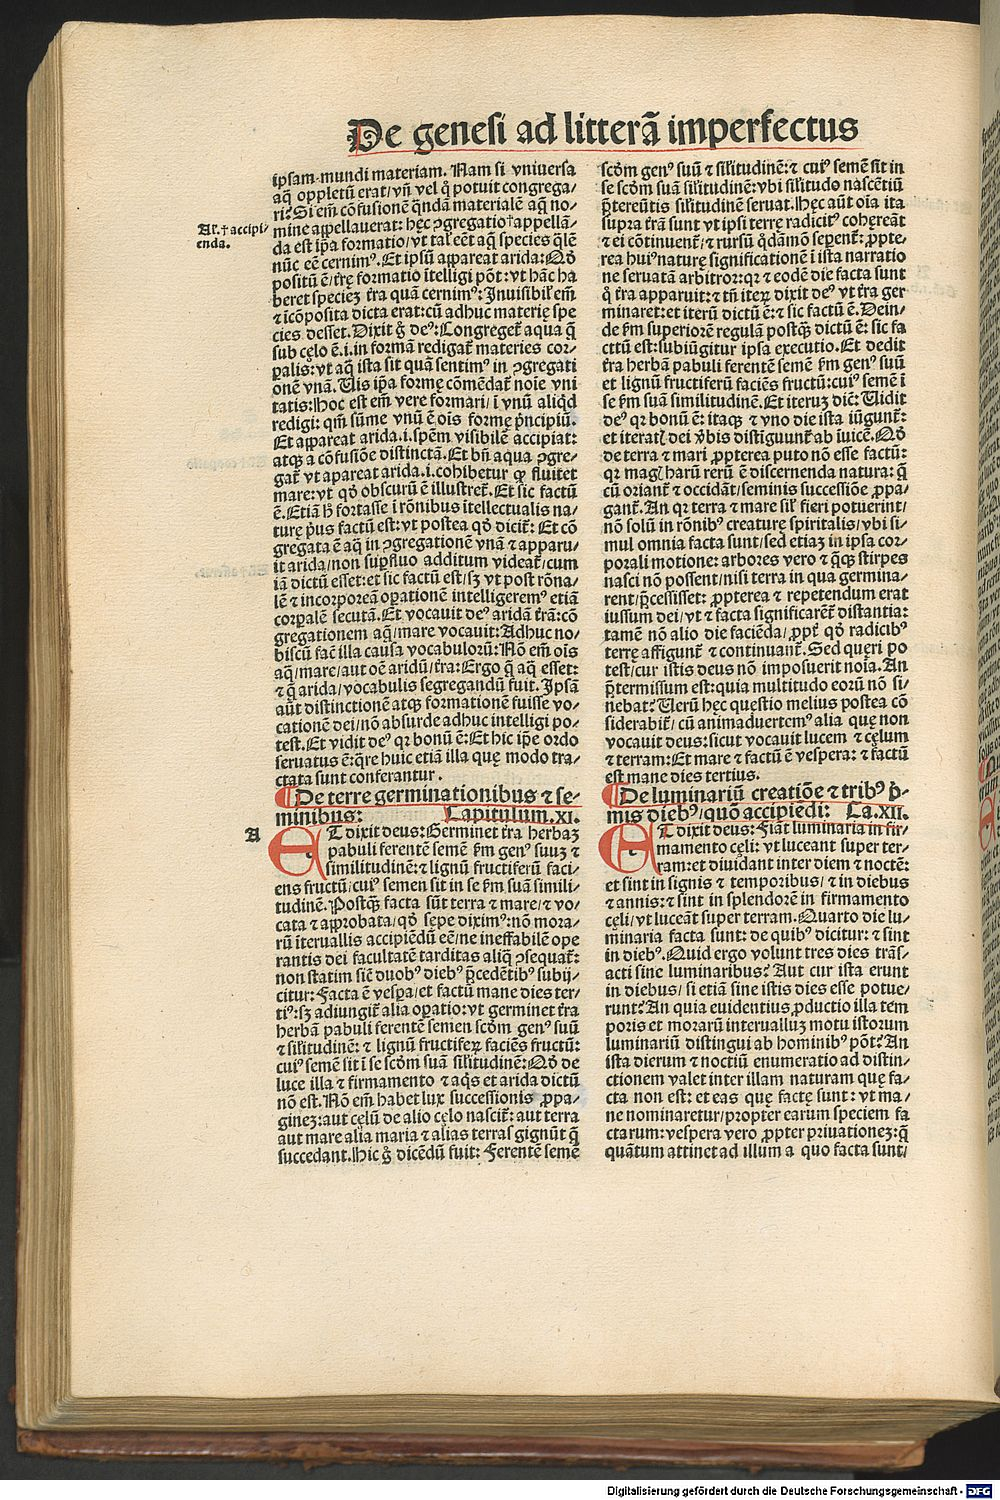 De genesi ad litterā imperfectus
ipsam mundi materiam. Nam si vniuersa
aq̄ oppletū erat/vn̄ vel q̄ potuit congrega/
ri? Si em̄ cōfusionē q̄ndā materialē aq̄ no/
mine appellauerat: hęc ꝯgregatio†appellā/
da est ip̄a formatio/vt tal' eēt aq̄ species q̄lē
nūc eē cernimꝰ. Et ipsū appareat arida: Qd̄
positū ē/t̄rę formatio ītelligi pōt: vt hāc ha
beret speciez t̄ra quā cernimꝰ: Inuisibil' em̄
⁊ icōposita dicta erat: cū adhuc materię spe
cies deesset. Dixit g̊ deꝰ: Congreget̄ aqua q̄
sub cęlo ē.i.in formā redigat̄ materies cor/
ꝑalis: vt aq̄ ista sit quā sentimꝰ in ꝯgregati
onē vnā. Uis ip̄a formę cōmēdat̄ noīe vni
tatis: Hoc est em̄ vere formari/ ī vnū aliqd
redigi: qm̄ sūme vnū ē oīs formę p̄ncipiū.
Et appareat arida.i.spēm visibilē accipiat:
atqꝫ a cōfusiōe distinctā. Et bn̄ aqua ꝯgre/
gat̄ vt apareat arida.i.cohibetur qꝛ fluitet
mare: vt qd̄ obscurū ē illustret̄. Et sic factū
ē. Etiā h̄ fortasse i rōnibus ītellectualis na/
turę p̄us factū est: vt postea qd̄ dicit̄: Et cō
gregata ē aq̄ in ꝯgregationē vnā ⁊ apparu/
it arida/non suꝑfluo additum videat̄/cum
iā dictū esset: et sic factū est/sꝫ vt post rōna/
lē ⁊ incorporeā oꝑationē intelligeremꝰ etiā
corꝑalē secutā. Et vocauit deꝰ aridā t̄rā: cō
gregationem aq̄/mare vocauit: Adhuc no/
biscū facit illa causa vocabulorū: Nō em̄ oīs
aq̄/mare/aut oē aridū/t̄ra: Ergo q̄ aq̄ esset:
⁊ q̄ arida/vocabulis segregandū fuit. Ipsā
aūt distinctionē atqꝫ formationē fuisse vo/
cationē dei/nō absurde adhuc intelligi po/
test. Et vidit deꝰ qꝛ bonū ē: Et hic ip̄e ordo
seruatus ē: q̄re huic etiā illa quę modo tra/
ctata sunt conferantur.
¶De terre germinationibus ⁊ se/
minibus: Capitulum.XI.
ET dixit deus: Germinet t̄ra herbaꝫ
pabuli ferentē semē ẜm genꝰ suuꝫ ⁊
similitudinē: ⁊ lignū fructiferū faci/
ens fructū/cuiꝰ semen sit in se ẜm suā simili/
tudinē. Postqꝫ facta sūt terra ⁊ mare/⁊ vo/
cata ⁊ approbata/qd̄ sepe diximꝰ: nō mora/
rū īteruallis accipiēdū eē/ne ineffabilē ope
rantis dei facultatē tarditas aliq̄ ꝯsequat̄:
non statim siē duobꝰ diebꝰ p̄cedētibꝰ subij/
citur: Facta ē vesꝑa/et factū mane dies ter/
tiꝰ: sꝫ adiungit̄ alia oꝑatio: vt germinet t̄ra
herbā pabuli ferentē semen scd̄m genꝰ suū
⁊ sil'itudinē: ⁊ lignū fructiferꝫ faciēs fructū:
cuiꝰ semē sit ī se scd̄m suā sil'itudinē: Qd̄ de
luce illa ⁊ firmamento ⁊ aq̄s et arida dictū
nō est. Nō em̄ habet lux successionis ꝓpa/
ginez: aut cęlū de alio cęlo nascit̄: aut terra
aut mare alia maria ⁊ alias terras gignūt q̄
succedant. Hic g̊ dicēdū fuit: Ferentē semē
Al'.†accipi/
enda.
A
scd̄m genꝰ suū ⁊ sil'itudinē: ⁊ cuiꝰ semē sit in
se scd̄m suā sil'itudinē: vbi sil'itudo nascētiū
p̄tereūtis sil'itudinē seruat. Hęc aūt oīa ita
supra t̄rā sunt vt ipsi terrę radicitꝰ cohęreāt
⁊ ei cōtinuent̄/⁊ rursū q̄dāmō seꝑent̄: ꝓpte/
rea huiꝰ naturę significationē i ista narratio
ne seruatā arbitror: qꝛ ⁊ eodē die facta sunt
q̄ t̄ra apparuit: ⁊ tn̄ iteꝝ dixit deꝰ vt t̄ra ger
minaret: et iterū dictū ē: ⁊ sic factū ē. Dein/
de ẜm superiorē regulā postqꝫ dictū ē: sic fa
cttū est: subiūgitur ipsa executio. Et dedit
t̄ra herbā pabuli ferentē semē ẜm genꝰ suū
et lignū fructiferū faciēs fructū: cuiꝰ semē ī
se ẜm suā similitudinē. Et iteruꝫ diē: Uidit
deꝰ qꝛ bonū ē: itaqꝫ ⁊ vno die ista iūgunt̄:
et iterat' dei v̄bis distīguunt̄ ab īuicē. Qd̄
de terra ⁊ mari ꝓpterea puto nō esse factū:
qꝛ mag' harū rerū ē discernenda natura: q̄
cū oriant̄ ⁊ occidāt/seminis successiōe ꝓpa/
gant̄. An qꝛ terra ⁊ mare sil' fieri potuerint/
nō solū in rōnibꝰ creaturę spiritalis/vbi si/
mul omnia facta sunt/sed etiaꝫ in ipsa cor/
porali motione: arbores vero ⁊ q̄cqꝫ stirpes
nasci nō possent/nisi terra in qua germina/
rent/p̄cessisset: ꝓpterea ⁊ repetendum erat
iussum dei/vt ⁊ facta significarēt̄ distantia:
tamē nō alio die faciēda/ꝓpt̄ qd̄ radicibꝰ
terrę affigunt̄ ⁊ continuant̄. Sed quęri po
test/cur istis deus nō imposuerit noīa. An
p̄termissum est: quia multitudo eorū nō si/
nebat? Uerū hęc questio melius postea cō
siderabit̄/cū animaduertemꝰ alia quę non
vocauit deus: sicut vocauit lucem ⁊ cęlum
⁊ terram: Et mare ⁊ factū ē vespera: ⁊ factū
est mane dies tertius.
¶De luminariū creatiōe ⁊ tribꝰ p̄/
mis diebꝰ/quō accipiēdi: Ca.XII.
ET dixit deus: Fiat luminaria in fir/
mamento cęli: vt luceant super ter/
ram: et diuidant inter diem ⁊ noctē:
et sint in signis ⁊ temporibus/⁊ in diebus
⁊ annis: ⁊ sint in splendorē in firmamento
cęli/vt luceāt super terram. Quarto die lu/
minaria facta sunt: de quibꝰ dicitur: ⁊ sint
in diebꝰ. Quid ergo volunt tres dies trās/
acti sine luminaribus? Aut cur ista erunt
in diebus/si etiā sine istis dies esse potue/
runt? An quia euidentius ꝓductio illa tem
poris et morarū interualluꝫ motu istorum
luminariū distingui ab hominibꝰ pōt? An
ista dierum ⁊ noctiū enumeratio ad distin/
ctionem valet inter illam naturam quę fa/
cta non est: et eas que factę sunt: vt ma/
ne nominaretur/propter earum speciem fa
ctarum: vespera vero ꝓpter priuationez: q̄
quātum attinet ad illum a quo facta sunt/
Digitalisierung gefördert durch die Deutsche Forschungsgemeinschaft - DFG